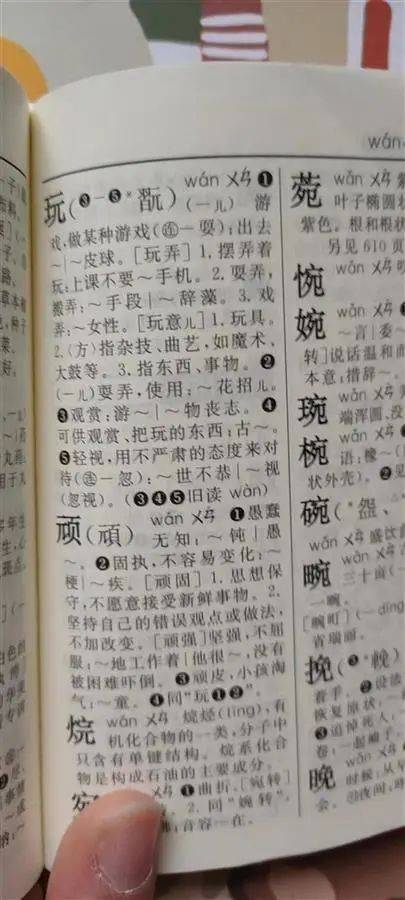 wán
玩(❸-❺*翫) wán ㄨㄢˊ ❶
(一儿) 游
戏,做某种游戏(㊣一耍):出去
~|~皮球。[玩弄] 1. 摆弄着
玩:上课不要~手机。2. 耍弄,
搬弄:~手段|~辞藻。3. 戏
弄:~女性。[玩意儿] 1. 玩具。
2.(方)指杂技、曲艺,如魔术、
大鼓等。3. 指东西、事物。❷
(一儿)耍弄,使用:~花招儿。
❸观赏:游~|~物丧志。❹
可供观赏、把玩的东西:古~。
❺轻视,用不严肃的态度来对
待(㊣一忽):~世不恭|~视
(忽视)。(❸❹❺旧读 wàn)
顽(頑) wán ㄨㄢˊ ❶愚蠢
无知:~钝|愚
~。❷固执,不容易变化:~
梗|~疾。[顽固] 1. 思想保
守,不愿意接受新鲜事物。2.
坚持自己的错误观点或做法,
不加改变。[顽强]坚强,不屈
服:~地工作着|他很~,没有
被困难吓倒。❸顽皮,小孩淘
气:~童。❹同“玩❶❷”。
烷 wán ㄨㄢˊ 烷烃(tīng),有
机化合物的一类,分子中
只含有单键结构。烷系化合
物是构成石油的主要成分。
❶曲折。[宛转]
2. 同“婉转”。
音容一在。
菀 wǎn ㄨㄢˇ 紫
叶子椭圆状
紫色,根和根状
另见 610 页
惋 wǎn ㄨㄢˇ
婉 wǎn ㄨㄢˇ
~言|委~
转]说话温和而
本意:措辞~。
琬 wǎn ㄨㄢˇ
端浑圆,没
椀 wǎn ㄨㄢˇ
语:橡~(
状外壳)。❷
碗(*盌、
wǎn ㄨㄢˇ 盛饮食
畹 wǎn ㄨㄢˇ
三十亩(一
一畹。
[畹町](-dīng
省瑞丽。
挽(❸*輓)
着手。❷设法
恢复原状:~
❸追悼死人:
卷:~起袖子。
晚 wǎn ㄨㄢˇ
时候:从早
会。㊣夜间: